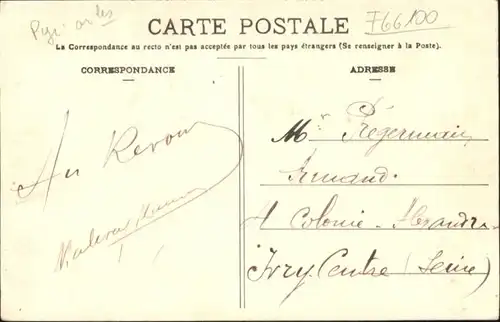 CARTE POSTALE
F66100
La Correspondance au recto n'est pas acceptée par tous les pays étrangers (Se renseigner à la Poste).
CORRESPONDANCE
ADRESSE
Au Revoir
Mr Prégermain
Armand
4 Colonie Alexandre
Ivry Centre (Seine)